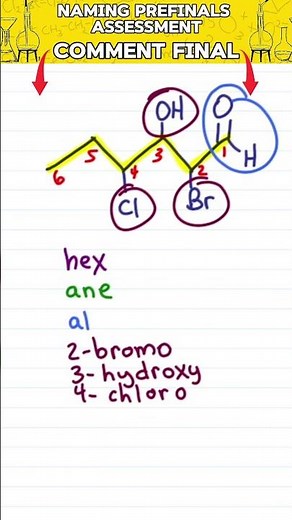 NAMING PREFINALS
ASSESSMENT
COMMENT FINAL
OH
O
H
1
2
3
4
5
6
Cl
Br
hex
ane
al
2-bromo
3-hydroxy
4-chloro